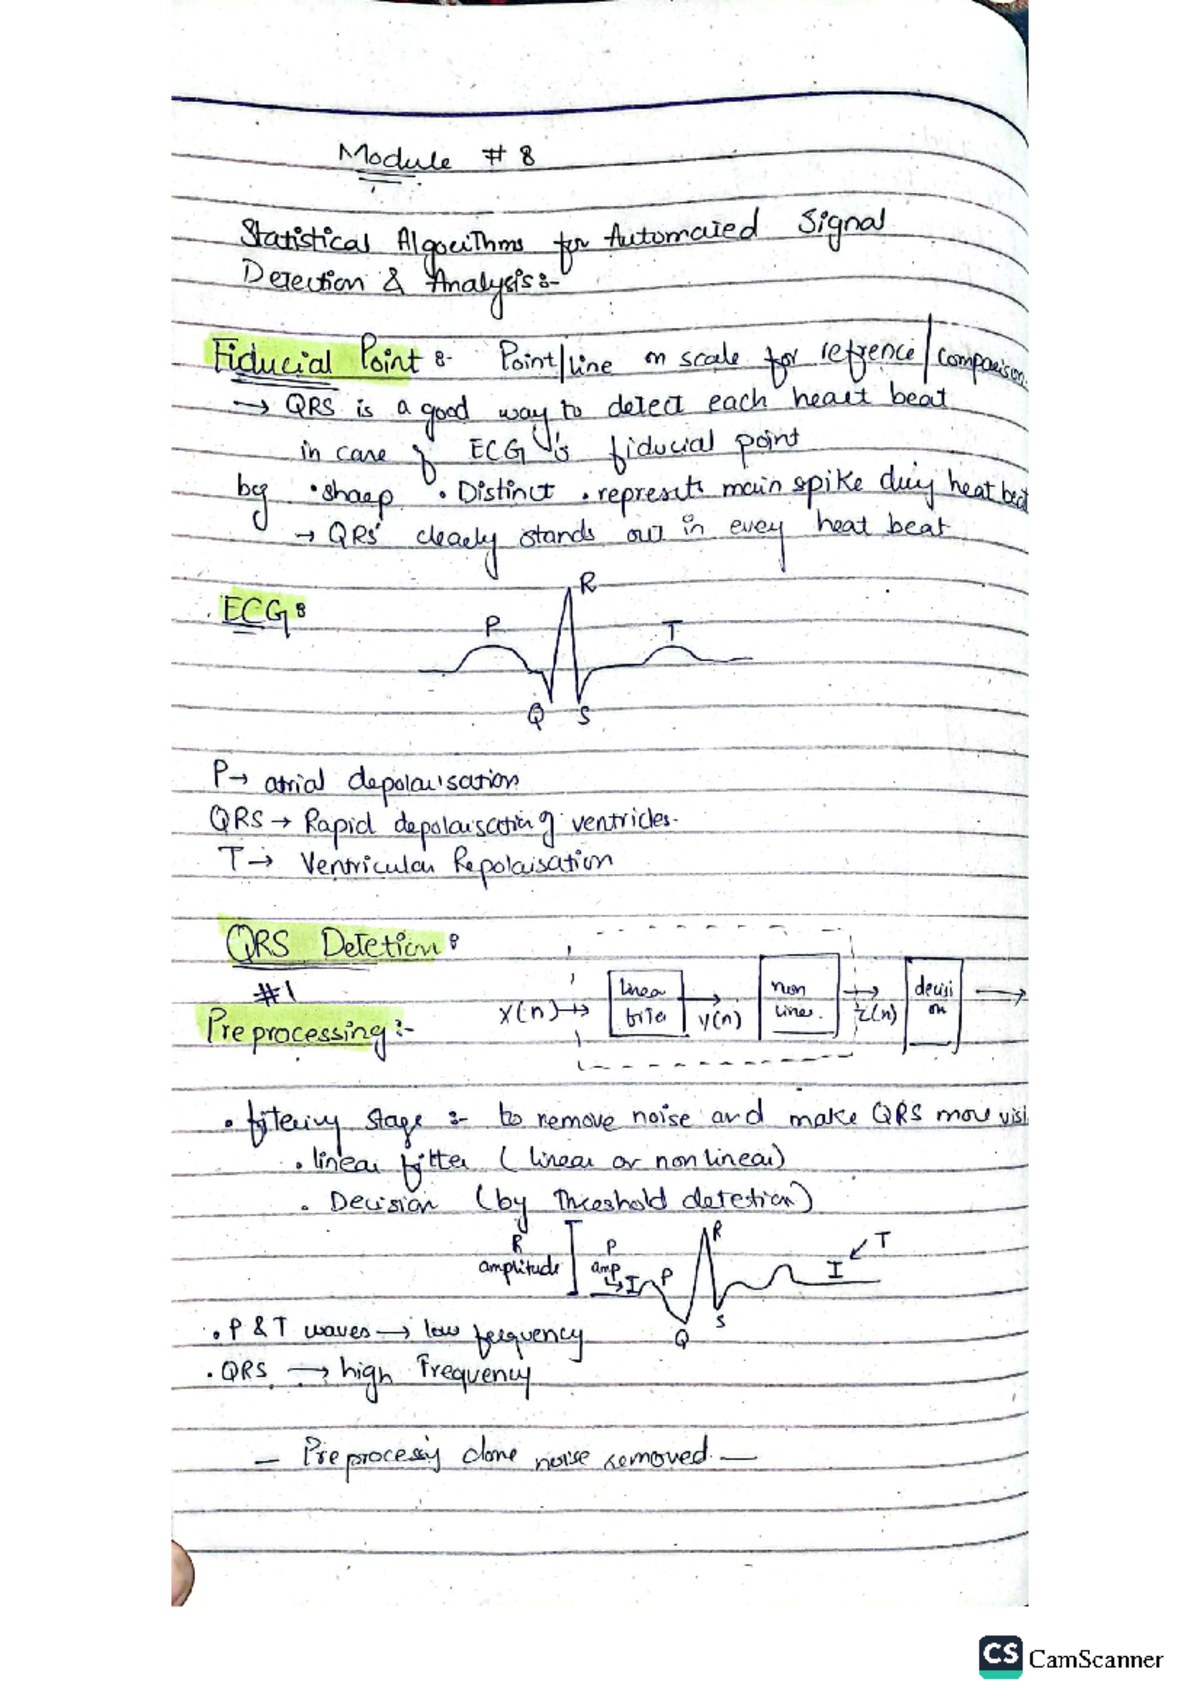 Module # 8
Statistical Algorithms for Automated Signal
Detection & Analysis:-
Fiducial Point :- Point/line on scale for refrence/comparison
→ QRS is a good way to detect each heart beat
in case of ECG is fiducial point
bcz • sharp • Distinct • represents main spike during heat beat
→ QRS clearly stands out in every heat beat
ECG:
R
P
T
Q S
P → atrial depolarisation
QRS → Rapid depolarisation of ventricles.
T → Ventricular Repolarisation
QRS Detetion:
#1
Preprocessing:-
X(n) → linear filter → Y(n) non linear. → Z(n) decision →
• filtering stage :- to remove noise and make QRS more visi
• linear filter (linear or non linear)
• Decision (by threshold detetion)
R amplitude
P amp
P
R
T
I
Q
S
• P & T waves → low frequency
• QRS → high frequency
— Preprocessing done noise removed. —
CS CamScanner